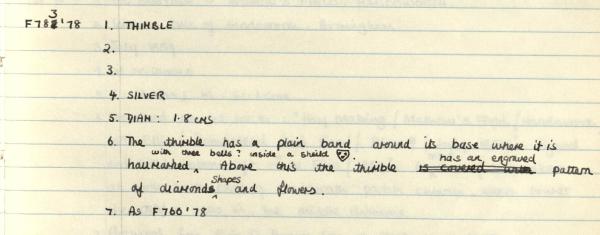 3
F782'78 1. THIMBLE
2.
3.
4. SILVER
5. DIAM: 1.8 CMS
6. The thimble has a plain band around its base where it is
with three bells? inside a sheild has an engraved
hallmarked ^ Above this the thimble is covered with pattern
shapes
of diamonds ^ and flowers.
7. As F760'78